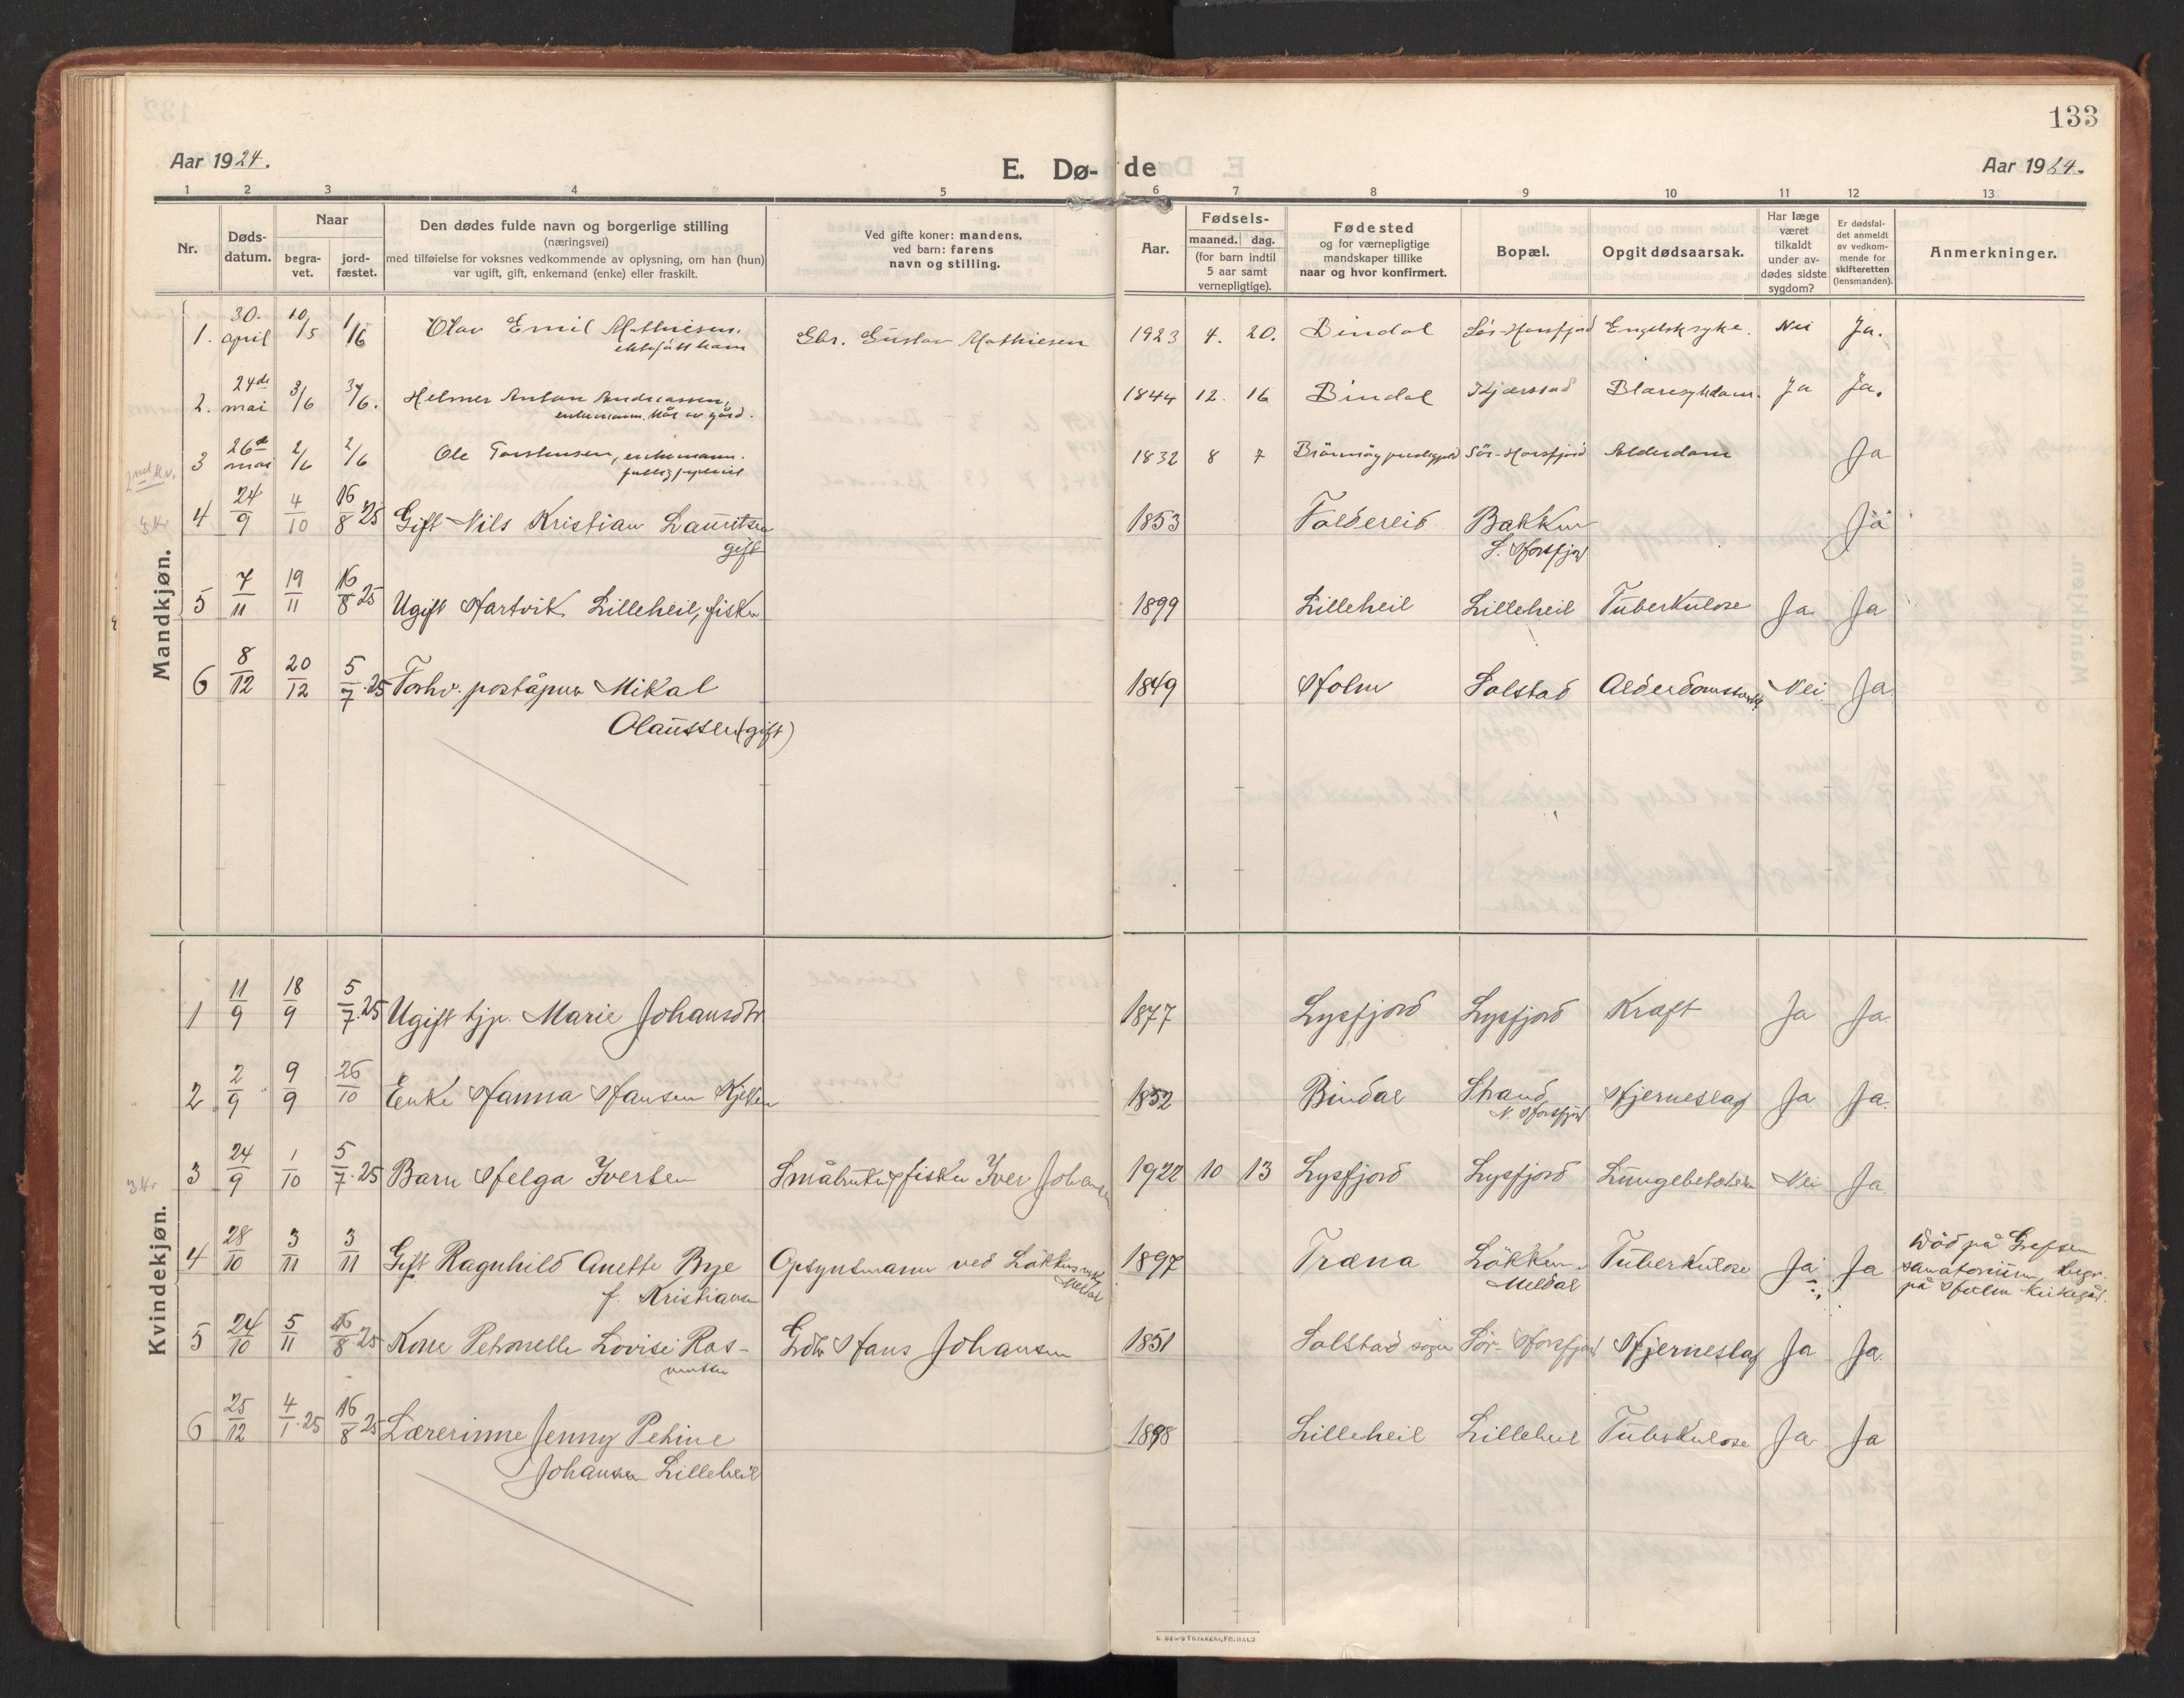 133
Aar 1924.
E. Dø-
de
Aar 1924.
1 2 3 4 5 6 7 8 9 10 11 12 13
Nr.
Døds-
datum.
Naar
begra-
vet.
jord-
fæstet.
Den dødes fulde navn og borgerlige stilling
(næringsvei)
med tilføielse for voksnes vedkommende av oplysning, om han (hun)
var ugift, gift, enkemand (enke) eller fraskilt.
Ved gifte koner: mandens,
ved barn: farens
navn og stilling.
Aar.
Fødsels-
maaned. dag.
(for barn indtil
5 aar samt
vernepligtige).
Fødested
og for værnepligtige
mandskaper tillike
naar og hvor konfirmert.
Bopæl.
Opgit dødsaarsak.
Har læge
været
tilkaldt
under av-
dødes sidste
sygdom?
Er dødsfal-
det anmeldt
av vedkom-
mende for
skifteretten
(lensmanden).
Anmerkninger.
Mandkjøn.
1. 30. april 10/5 1/6 Olav Emil Mathiesen, Gbr. Gustav Mathiesen 1923 4. 20. Bindal Sör-Horsfjord Engelsk syke. Nei Ja.
2. 24de mai 3/6 3/6. Helmer Anton Andreassen, 1844 12. 16 Bindal Kjærstad Ja Ja.
enkemann, kår av gård.
3 26de mai 2/6 2/6 Ole Torstensen, enkemann. 1832 8 7 Brönnöy Sör-Horsfjord Alderdom Ja
4 24/9 4/10 16/8 25 Gift Nils Kristian Lauritsen 1853 Foldereid Bakken Ja
gift S. Horsfjord
5 7/11 19/11 16/8 25 Ugift Hartvik Lilleheil, fisker 1899 Lilleheil Lilleheil Tuberkulose Ja Ja
6 8/12 20/12 5/7.25 Forhv. poståpner Mikal 1849 Holm Solstad Nei Ja
Olaussen (gift)
Kvindekjøn.
1 11/9 18/9 5/7.25 Ugift tjp. Marie Johansdtr 1877 Lysfjord Lysfjord Kræft Ja Ja
2 2/9 9/9 26/10 Enke Hanna Hansen 1852 Bindal Strand Hjerneslag Ja Ja.
N. Horsfjord
3 24/9 1/10 5/7.25 Barn Helga Iversen Småbruker & fisker Iver Johansen 1922 10 13 Lysfjord Lysfjord Nei Ja
4 28/10 3/11 3/11 Gift Ragnhild Anette Bye Opsynsmann ved Lökkens verk 1897 Træna Lökken Tuberkulose Ja Ja Död på Grefsen
f. Kristiansen Meldal Meldal sanatorium, begr.
på Holm kirkegård.
5 24/10 5/11 16/8 25 Kone Petronelle Lovise Ras- Grdbr Hans Johansen 1851 Solstad sogn Sör-Horsfjord Hjerneslag Ja Ja
mussen
6 25/12 4/1.25 16/8 25 Lærerinne Jenny Petine 1898 Lilleheil Lilleheil Tuberkulose Ja Ja
Johansen Lilleheil